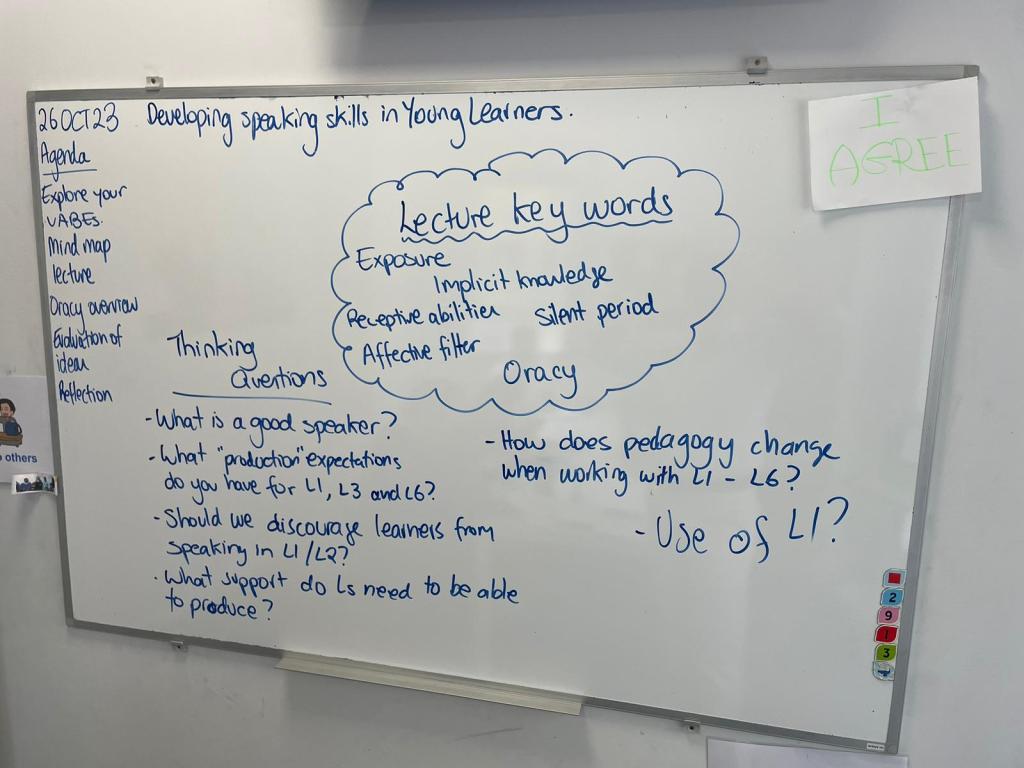 26 OCT 23
Developing speaking skills in Young Learners.
Agenda
Explore your
VABEs.
Mind map
lecture
Oracy overview
Evaluation of
ideas
Reflection
Lecture key words
Exposure
Implicit knowledge
Receptive abilities
Silent period
Affective filter
Oracy
Thinking
Questions
- What is a good speaker?
- What "production" expectations
do you have for L1, L3 and L6?
- Should we discourage learners from
speaking in L1/L2?
- What support do Ls need to be able
to produce?
- How does pedagogy change
when working with L1 - L6?
- Use of L1?
I
AGREE
others
2
9
1
3